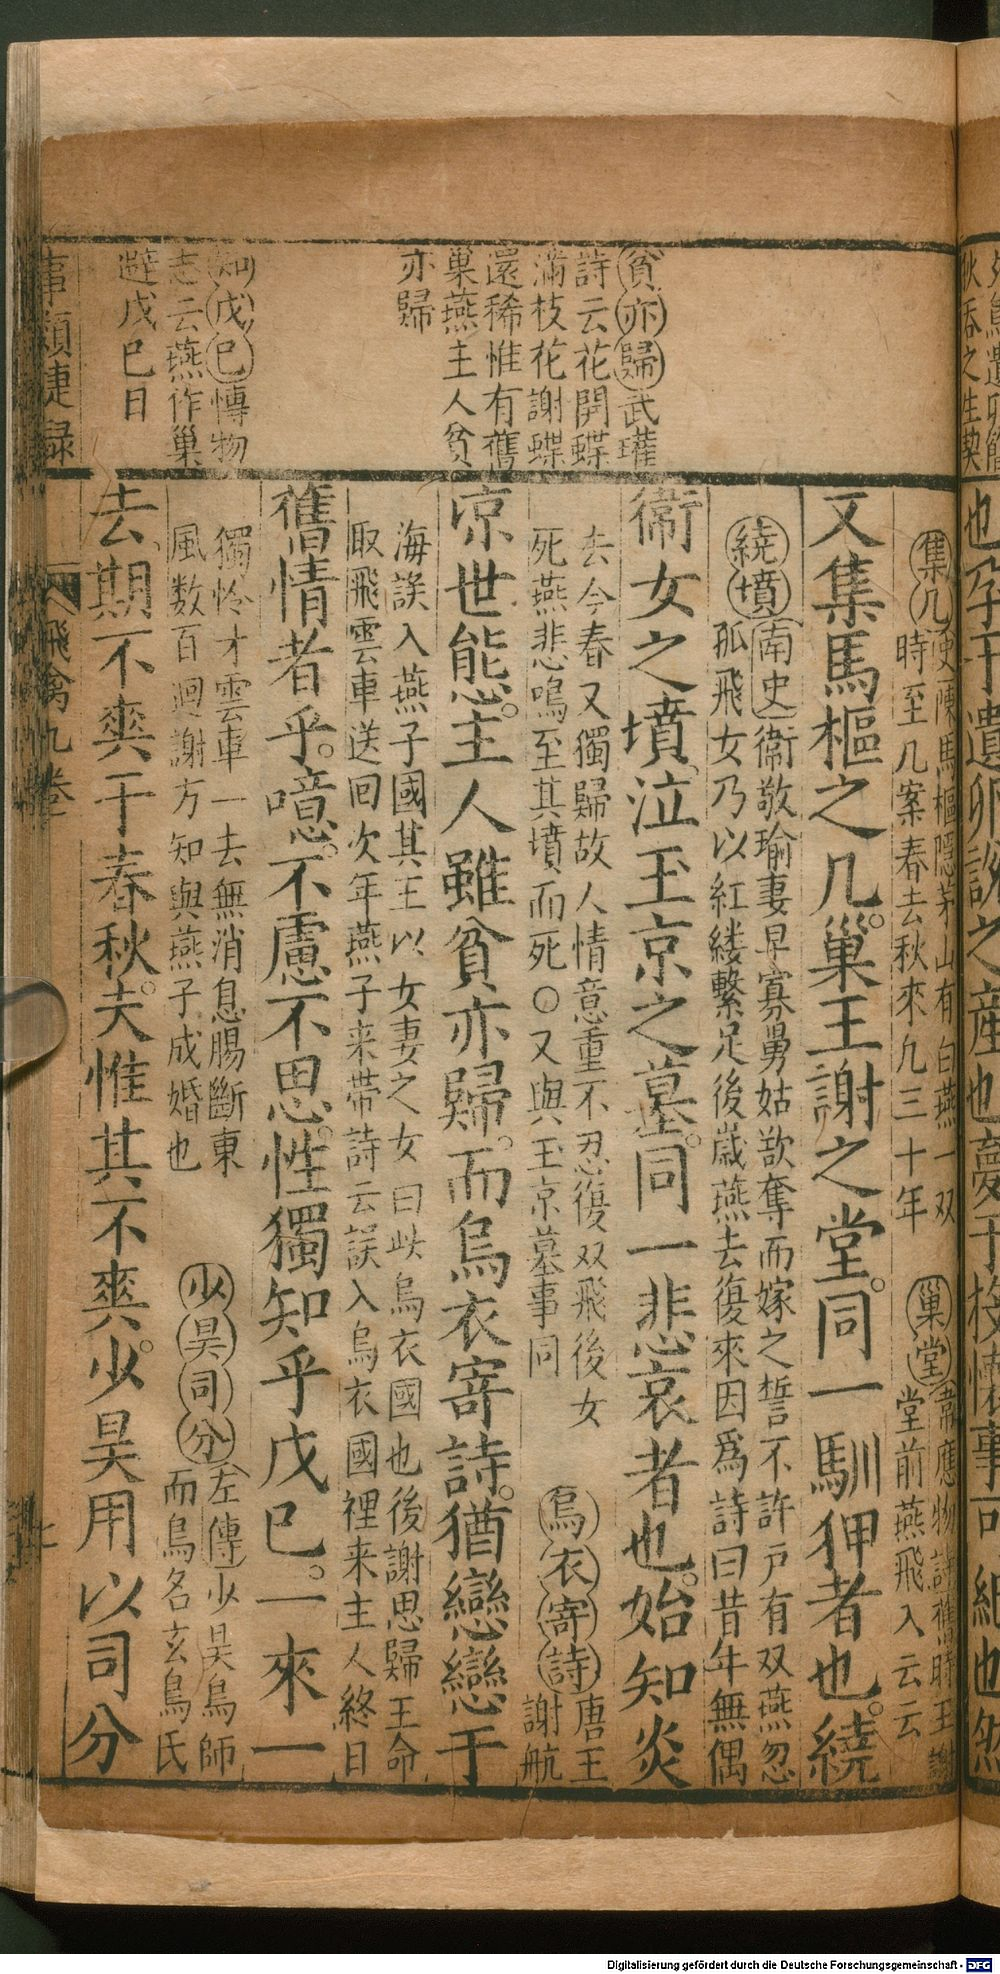 貧亦歸武瓘
詩云花開蝶
滿枝花謝蝶
還稀惟有舊
巢燕主人貧
亦歸
知戊巳愽物
志云燕作巢
避戊巳日
集几史陳馬樞隱茅山有白燕一双
時至几案春去秋來九三十年
巢堂韋應物詩舊時王謝
堂前燕飛入云云
又集馬樞之几。巢王謝之堂。同一馴狎者也。繞
繞墳南史衞敬瑜妻早寡舅姑欲奪而嫁之誓不許戸有双燕忽
孤飛女乃以紅縷繫足後歲燕去復來因爲詩曰昔年無偶
衞女之墳。泣玉京之墓。同一悲哀者也。始知炎
去今春又獨歸故人情意重不忍復双飛後女
死燕悲鳴至其墳而死〇又與玉京墓事同
烏衣寄詩唐王
謝航
凉世態。主人雖貧亦歸。而烏衣寄詩。猶戀戀于
海誤入燕子國其王以女妻之女曰此烏衣國也後謝思歸王命
取飛雲車送回次年燕子来帯詩云誤入烏衣國裡来主人終日
舊情者乎。噫。不慮不思。性獨知乎戊巳。一來一
獨怜才雲車一去無消息腸斷東
風数百迴謝方知與燕子成婚也
少昊司分左傳少昊鳥師
而鳥名玄鳥氏
去。期不爽于春秋。夫惟其不爽。少昊用以司分
事類捷錄
飛禽九巻
Digitalisierung gefördert durch die Deutsche Forschungsgemeinschaft - DFG